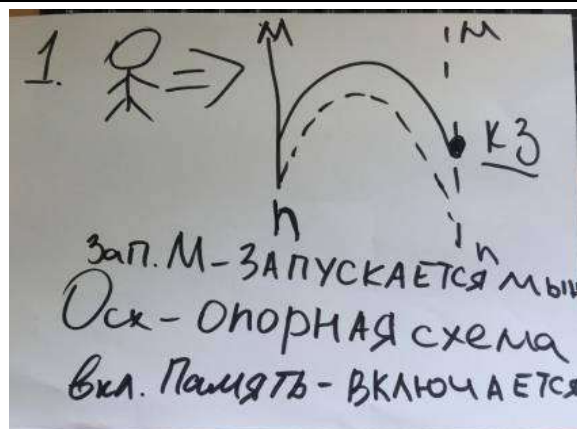 1.
М М
КЗ
п п
Зап. М - ЗАПУСКАЕТСЯ
Осх - опорная схема
вкл. Память - ВКЛЮЧАЕТСЯ